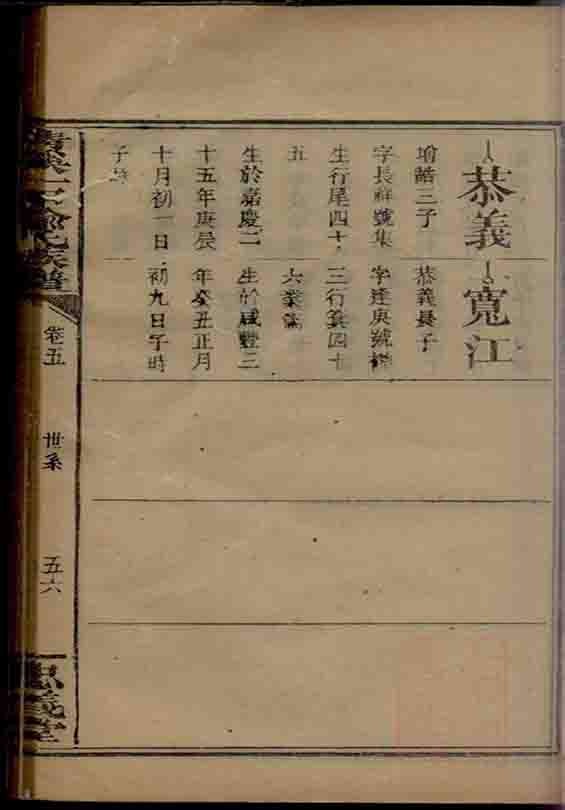 恭義
三子
字長祥號集
生行尾四十
五
生於嘉慶二
十五年庚辰
十月初一日
子時
寬江
恭義長子
字逢庚號
三行箕四十
六業儒
生於咸豐三
年癸丑正月
初九日子時
氏族譜
卷五
世系
五六
忠義堂